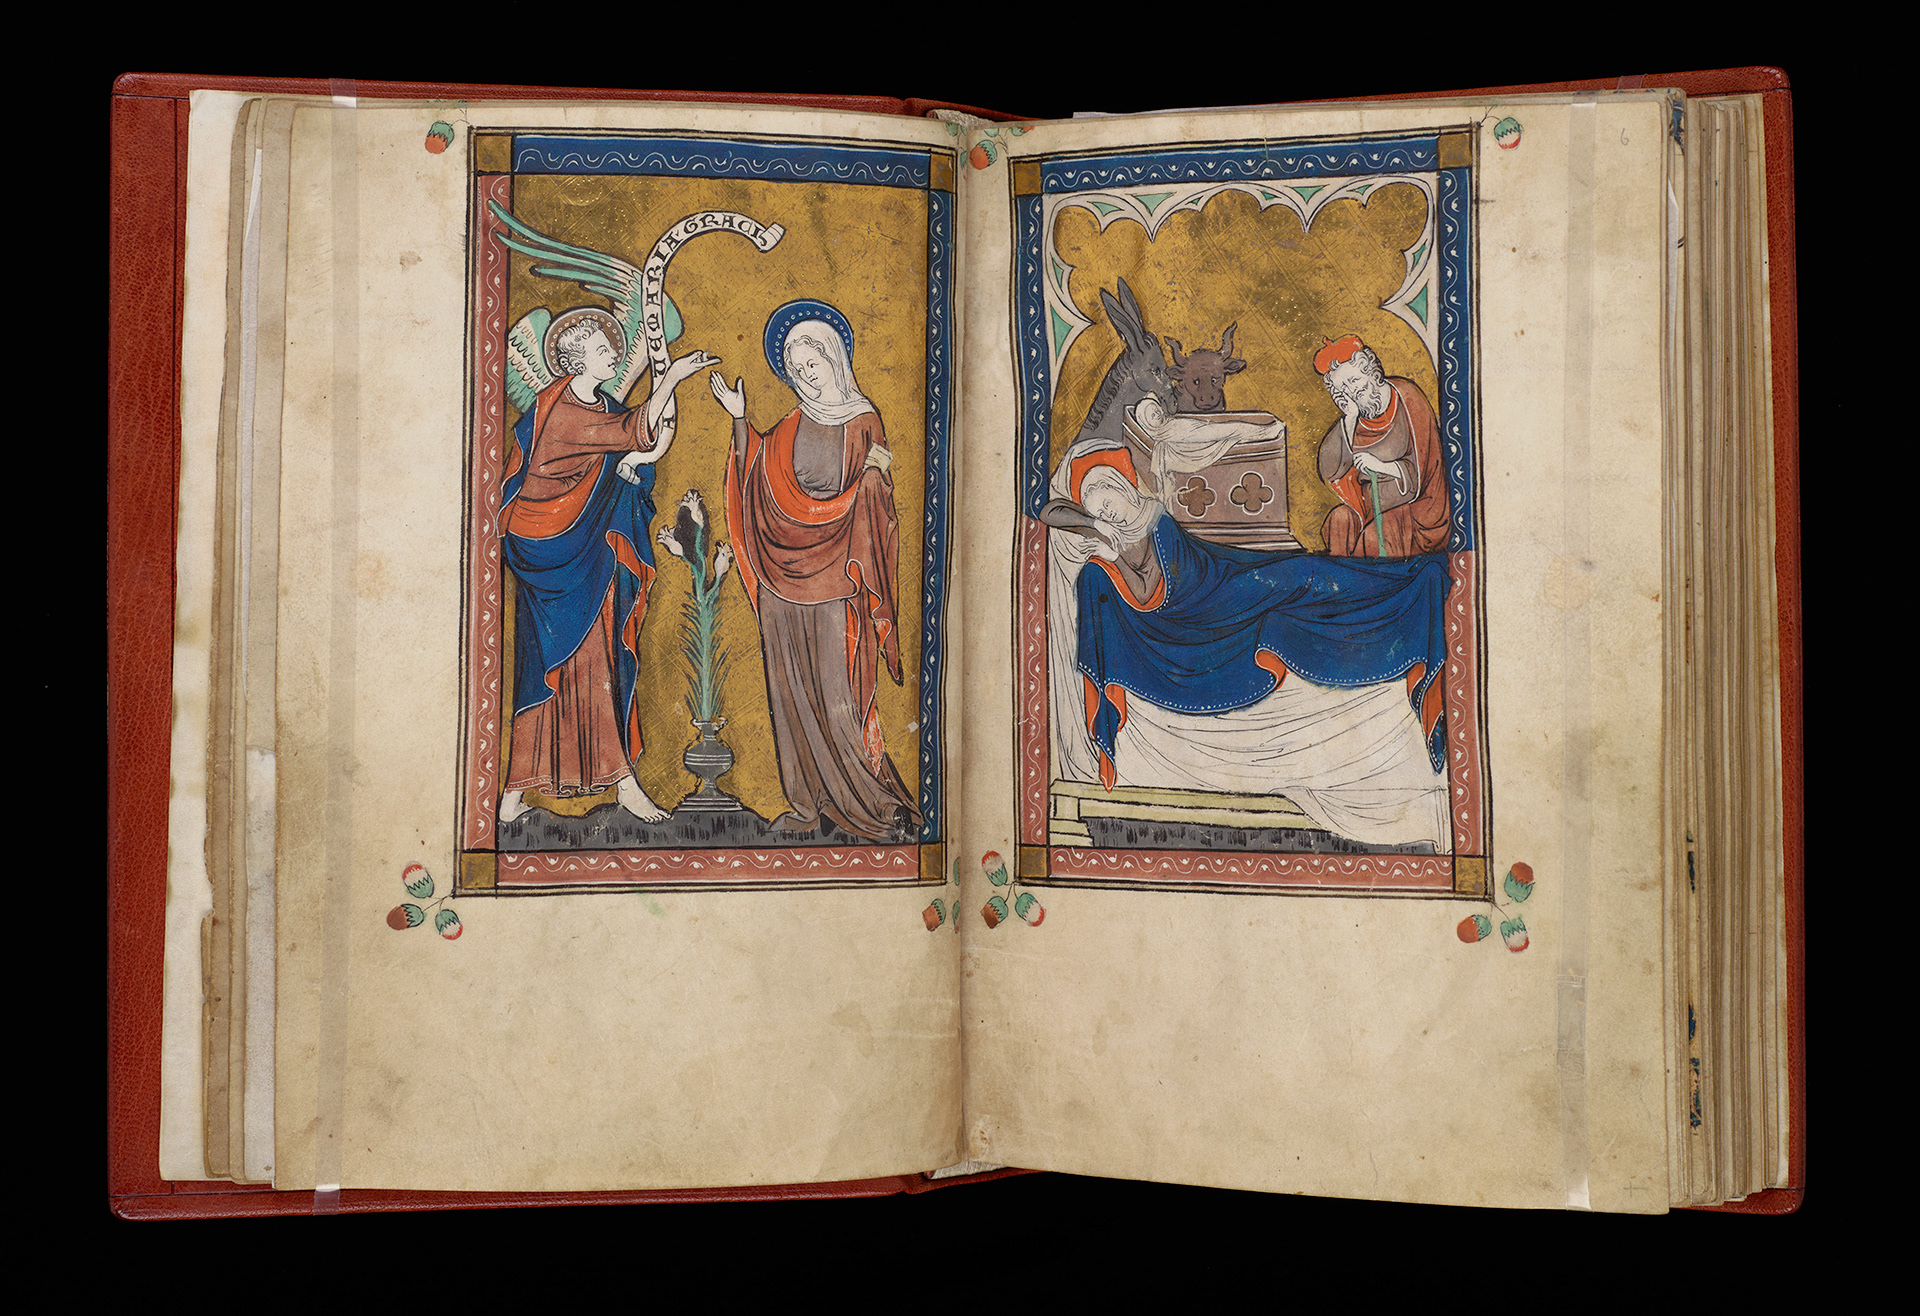 AUE MARIA GRACI
6